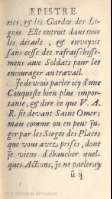 EPISTRE
nies, et les Gardes des Li-
gnes. Elle entroit dans tous
les détails, et envoyoit
sans cesse des rafraîchisse-
mens aux Soldats pour les
encourager au travail.
Je devrois parler icy d'une
Conqueste bien plus impor-
tante, et dire ce que V. A.
R. fit devant Saint Omer;
mais comme on en peut ju-
ger par les Sieges des Places
que vous avez prises, dont
je viens d'ébaucher quel-
ques Actions, je ne parleray